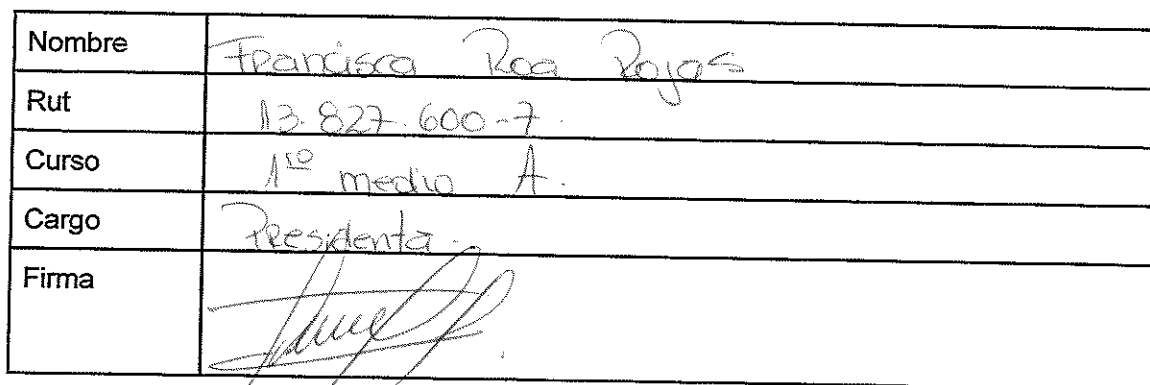 Nombre Francisca Roa Rojas
Rut 13.827.600-7.
Curso 1ro medio A.
Cargo Presidenta.
Firma